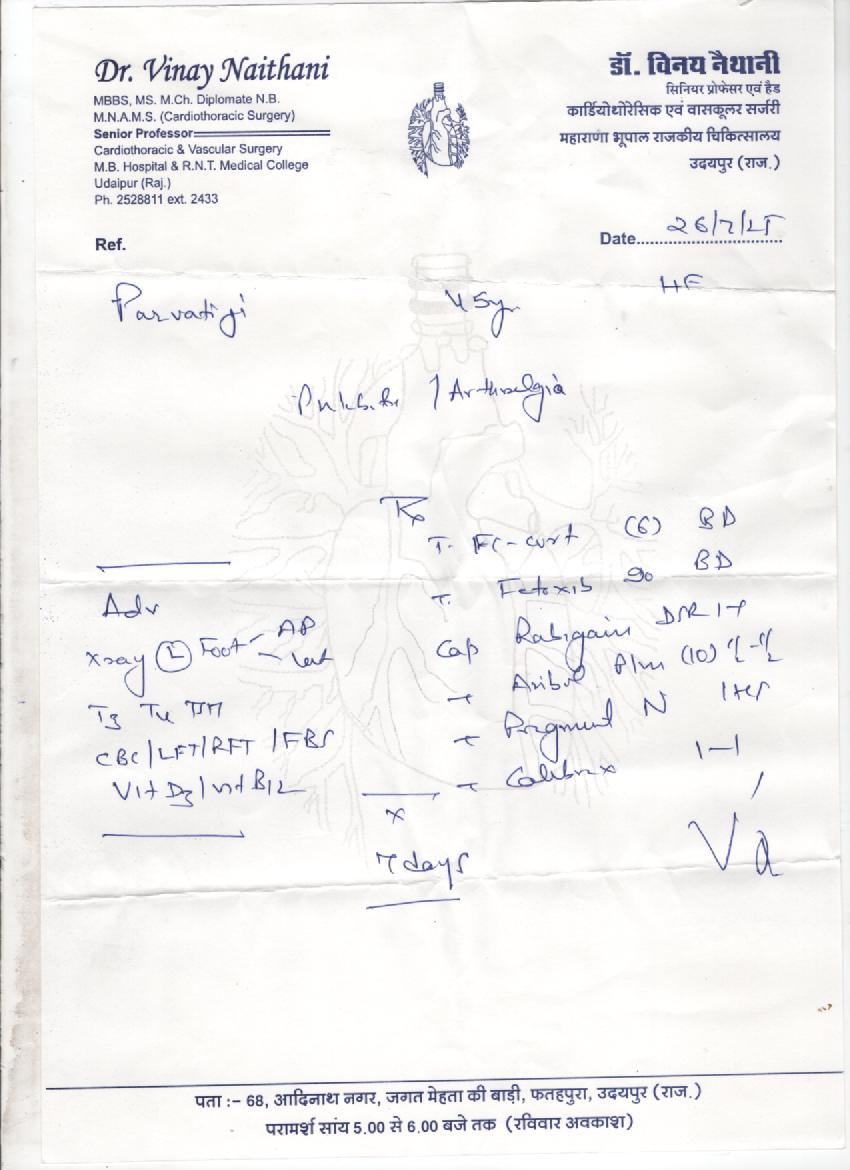 Dr. Vinay Naithani
MBBS, MS. M.Ch. Diplomate N.B.
M.N.A.M.S. (Cardiothoracic Surgery)
Senior Professor
Cardiothoracic & Vascular Surgery
M.B. Hospital & R.N.T. Medical College
Udaipur (Raj.)
Ph. 2528811 ext. 2433
डॉ. विनय नैथानी
सिनियर प्रोफेसर एवं हैड
कार्डियोथोरेसिक एवं वासकूलर सर्जरी
महाराणा भूपाल राजकीय चिकित्सालय
उदयपुर (राज.)
Ref.
Date 26/7/25
Parvati ji 45yr
/ Arthralgia
Rx
T. (6) BD
T. Etoxib 90 BD
Cap Rabigain DSR
Plus (10) ½-½
N 1 HS
1-1
x
7 days
Adv
Xray (L) Foot AP
Lat
T3 T4 TSH
CBC/LFT/RFT/FBS
Vit D3/Vit B12
पता :– 68, आदिनाथ नगर, जगत मेहता की बाड़ी, फतहपुरा, उदयपुर (राज.)
परामर्श सांय 5.00 से 6.00 बजे तक (रविवार अवकाश)